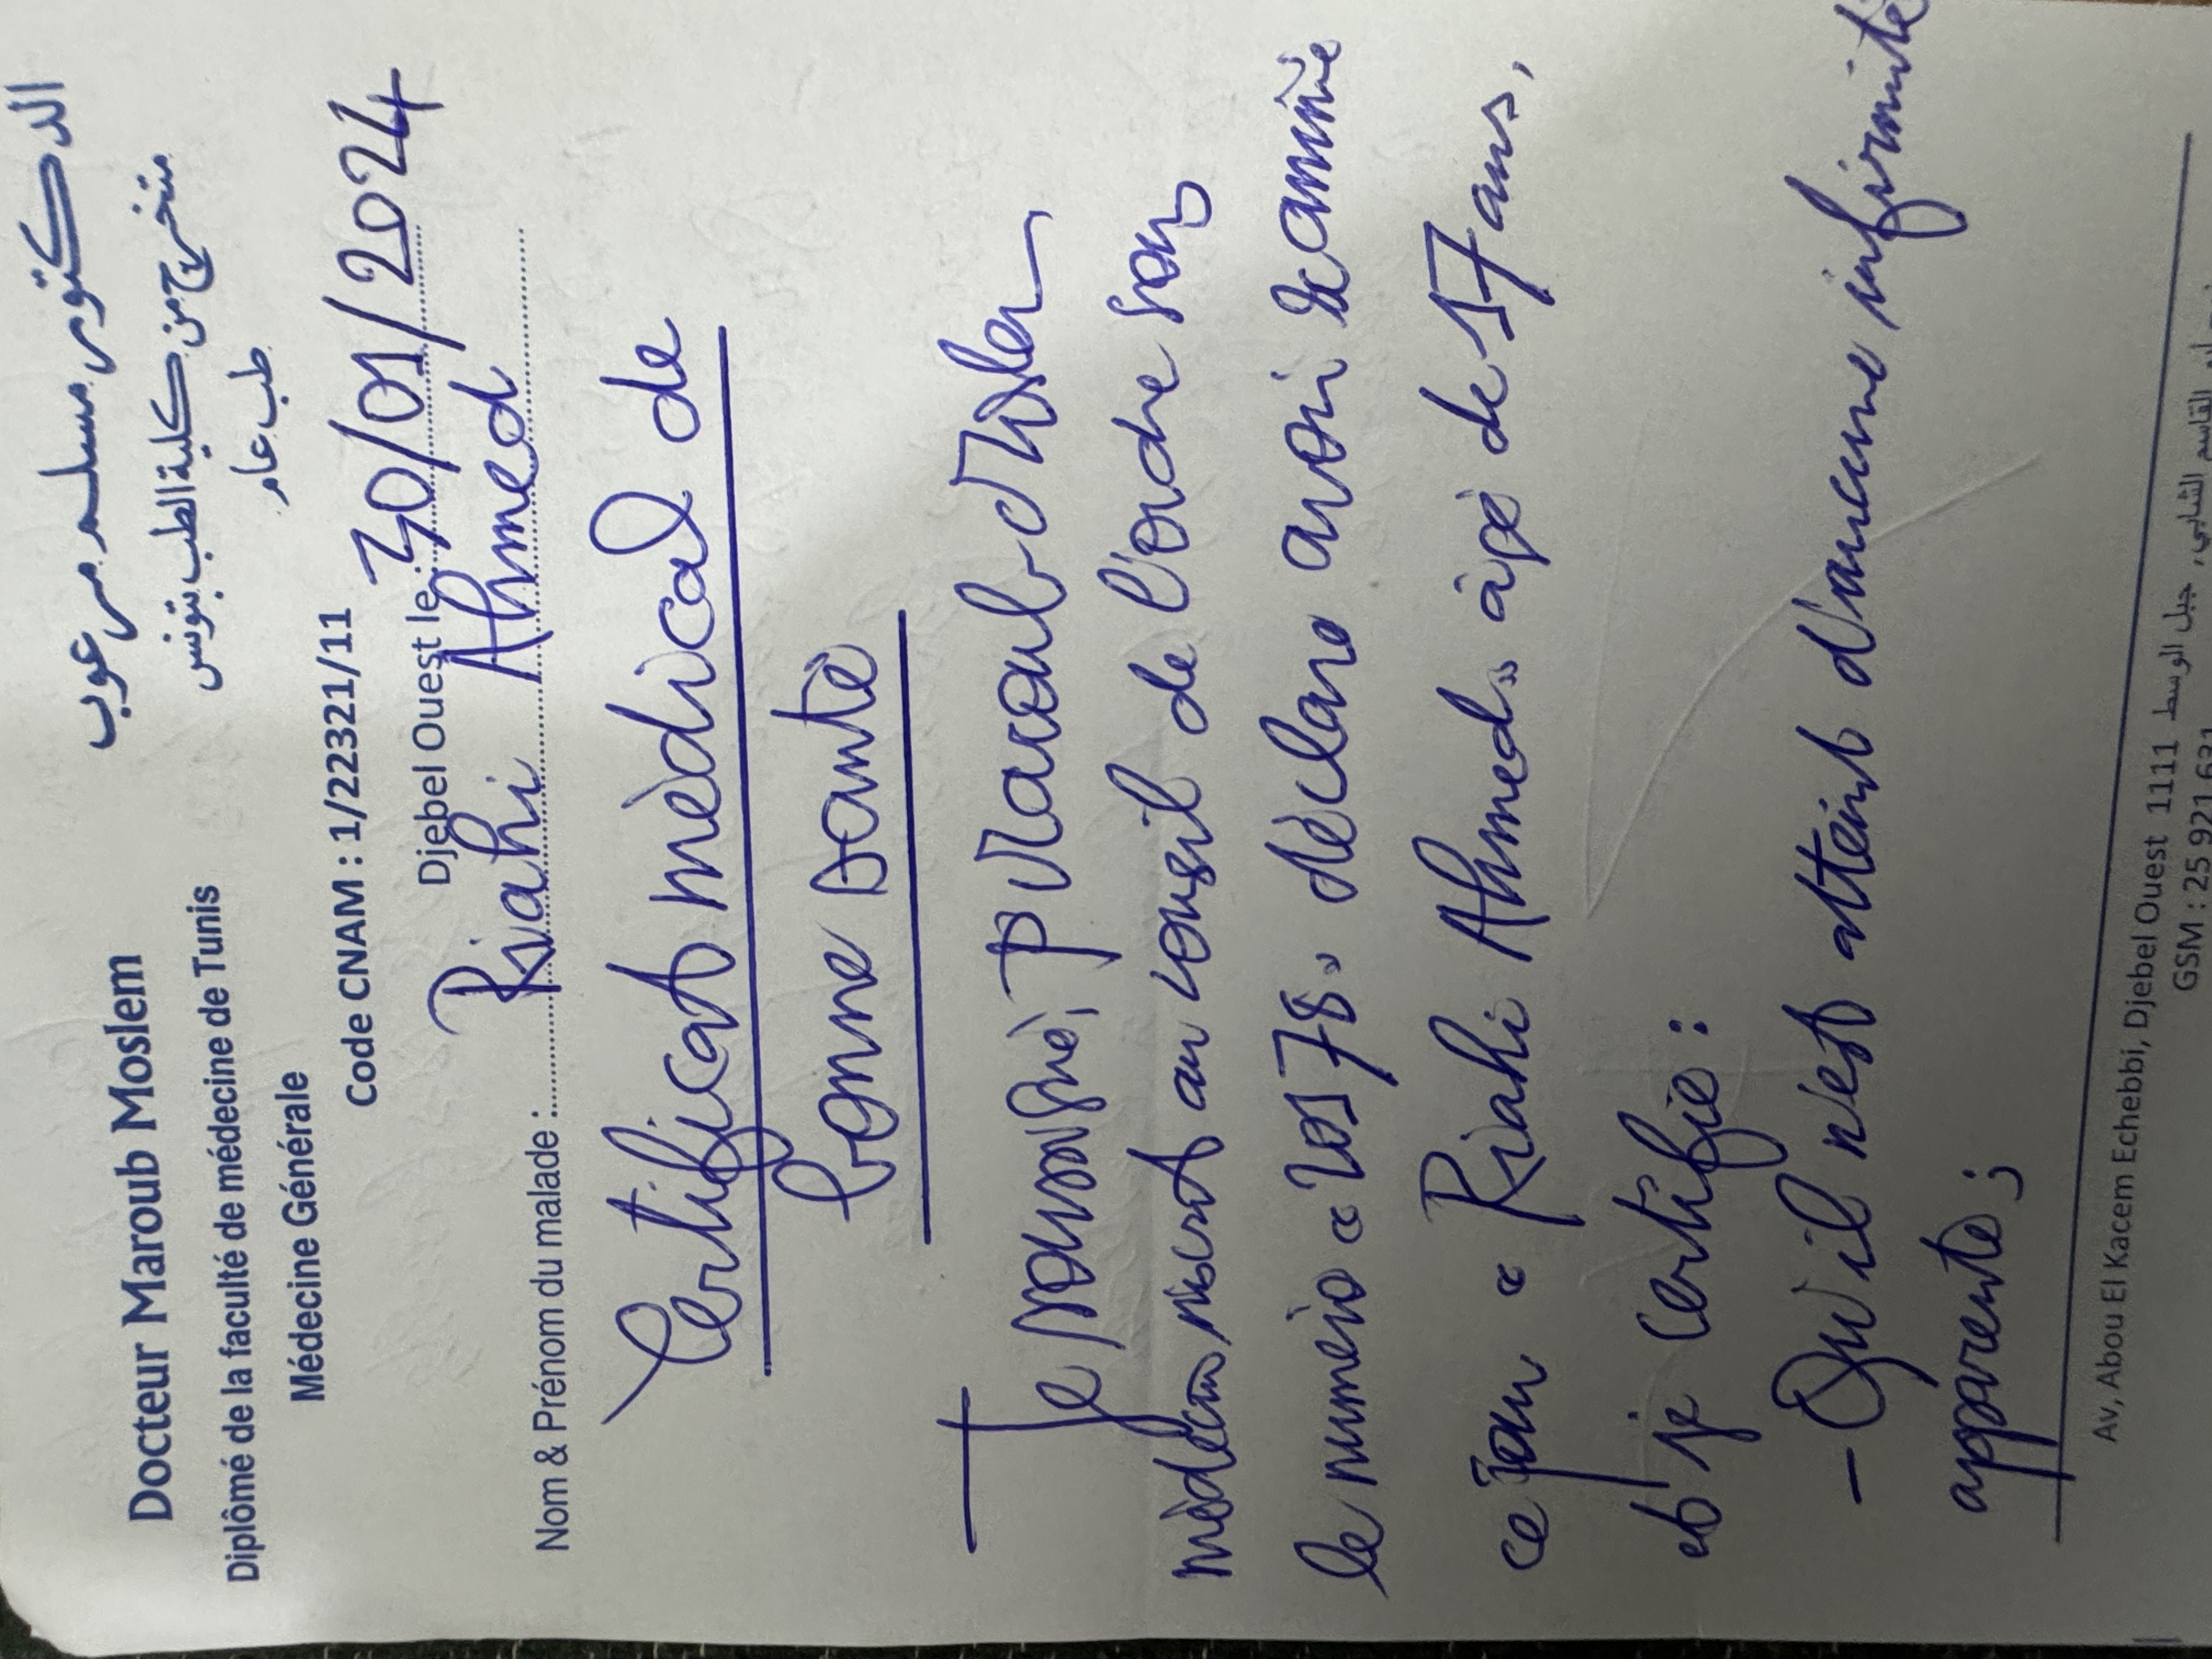 Docteur Maroub Moslem
الدكتور مسلم مرعوب
Diplômé de la faculté de médecine de Tunis
متخرج من كلية الطب بتونس
Médecine Générale
طب عام
Code CNAM : 1/22321/11
Djebel Ouest le : 30/01/2024
Nom & Prénom du malade : Riahi Ahmed
Certificat mèdical de
bonne santè
Je soussignè, Dr Maroub Moslem
mèdecin inscrit au conseil de l'ordre sous
le numèro « 20178 » dèclare avoir examinè
ce jour « Riahi Ahmed » àgè de 17 ans,
et je certifie :
- Qu'il n'est atteint d'aucune infirmitè
apparente ;
Av, Abou El Kacem Echebbi, Djebel Ouest 1111 القاسم الشابي, جبل الوسط
GSM : 25 921 631